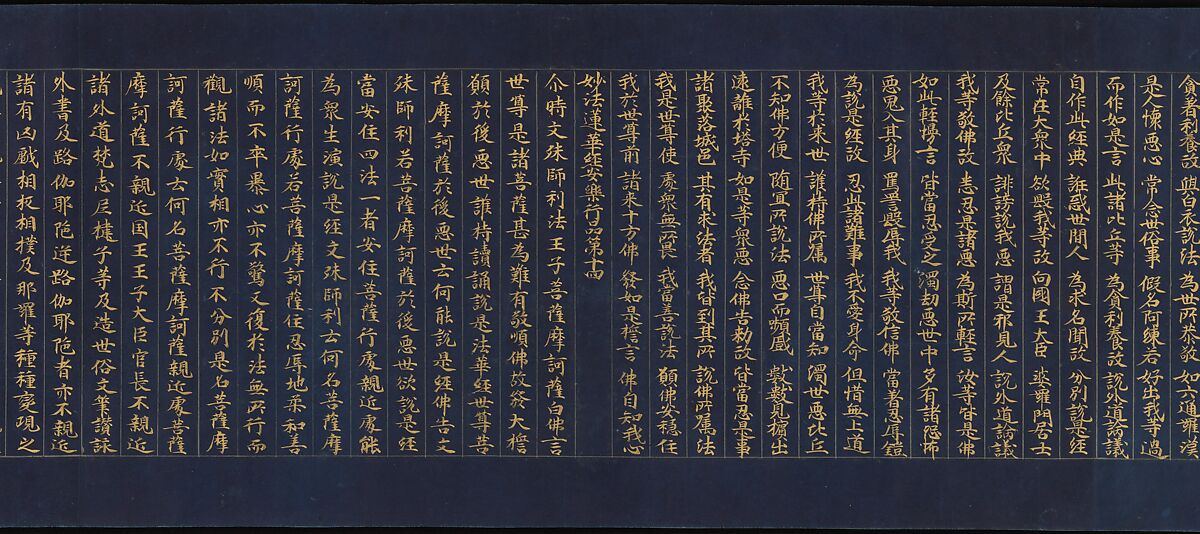 貪著利養故 與白衣說法 為世所恭敬 如六通羅漢
是人懐惡心 常念世俗事 假名阿練若 好出我等過
而作如是言 此諸比丘等 為貪利養故 說外道論議
自作此經典 誑惑世間人 為求名聞故 分別說是經
常在大衆中 欲毀我等故 向國王大臣 婆羅門居士
及餘比丘衆 誹謗說我惡 謂是邪見人 說外道論議
我等敬佛故 悉忍是諸惡 為斯所輕言 汝等皆是佛
如此輕慢言 皆當忍受之 濁劫惡世中 多有諸恐怖
惡鬼入其身 罵詈毀辱我 我等敬信佛 當著忍辱鎧
為說是經故 忍此諸難事 我不愛身命 但惜無上道
我等於来世 護持佛所属 世尊自當知 濁世惡比丘
不知佛方便 随宜所說法 惡口而嚬蹙 數數見擯出
遠離於塔寺 如是等衆惡 念佛告勅故 皆當忍是事
諸聚落城邑 其有求法者 我皆到其所 說佛所属法
我是世尊使 處衆無所畏 我當善說法 願佛安穩住
我於世尊前 諸来十方佛 發如是擔言 佛自知我心
妙法蓮華經安樂行品第十四
尒時文殊師利法王子菩薩摩訶薩白佛言
世尊是諸菩薩甚為難有敬順佛故發大擔
願於後惡世護持讀誦說是法華經世尊菩
薩摩訶薩於後惡世云何能說是經佛告文
殊師利若菩薩摩訶薩於後惡世欲說是經
當安住四法一者安住菩薩行處親近處能
為衆生演說是經文殊師利云何名菩薩摩
訶薩行處若菩薩摩訶薩住忍辱地柔和善
順而不卒暴心亦不驚又復於法無所行而
觀諸法如實相亦不行不分別是名菩薩摩
訶薩行處云何名菩薩摩訶薩親近處菩薩
摩訶薩不親近国王王子大臣官長不親近
諸外道梵志尼揵子等及造世俗文筆讚詠
外書及路伽耶陁逆路伽耶陁者亦不親近
諸有凶戲相扠相撲及那羅等種種變現之